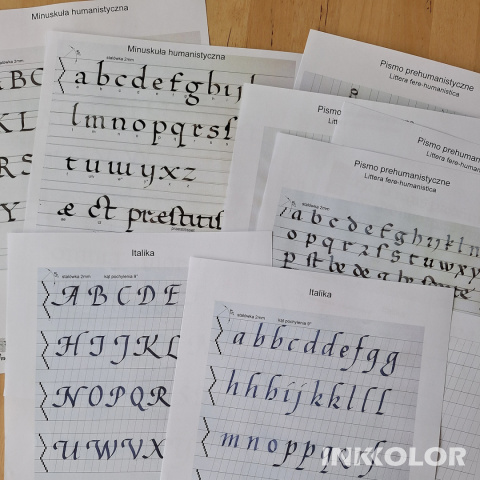 Minuskuła humanistyczna
BC
KL
RS
Y
Minuskuła humanistyczna
stalówka 2mm
a b c d e f g h ı ȷ
l m n o p q r s ſ
t u ɯ y x z
æ ct præſtitiſ
Pismo prehumanistyczne
Littera fere-humanistica
Pismo
Litt
Pismo prehumanistyczne
Littera fere-humanistica
Pismo prehumanistyczne
Littera fere-humanistica
stalówka 2mm
a b c d e f g h ı ȷ k l m
o p q r ꝛ s ſ t u w x y
Italika
stalówka 2mm kąt pochylenia 8°
A B C D E
H I J K L
N O P Q R
U W V X
Italika
stalówka 2mm kąt pochylenia 8°
a b b c d d e f g g
h h b i j k k l l ſ
m n o p p q
INKKOLOR